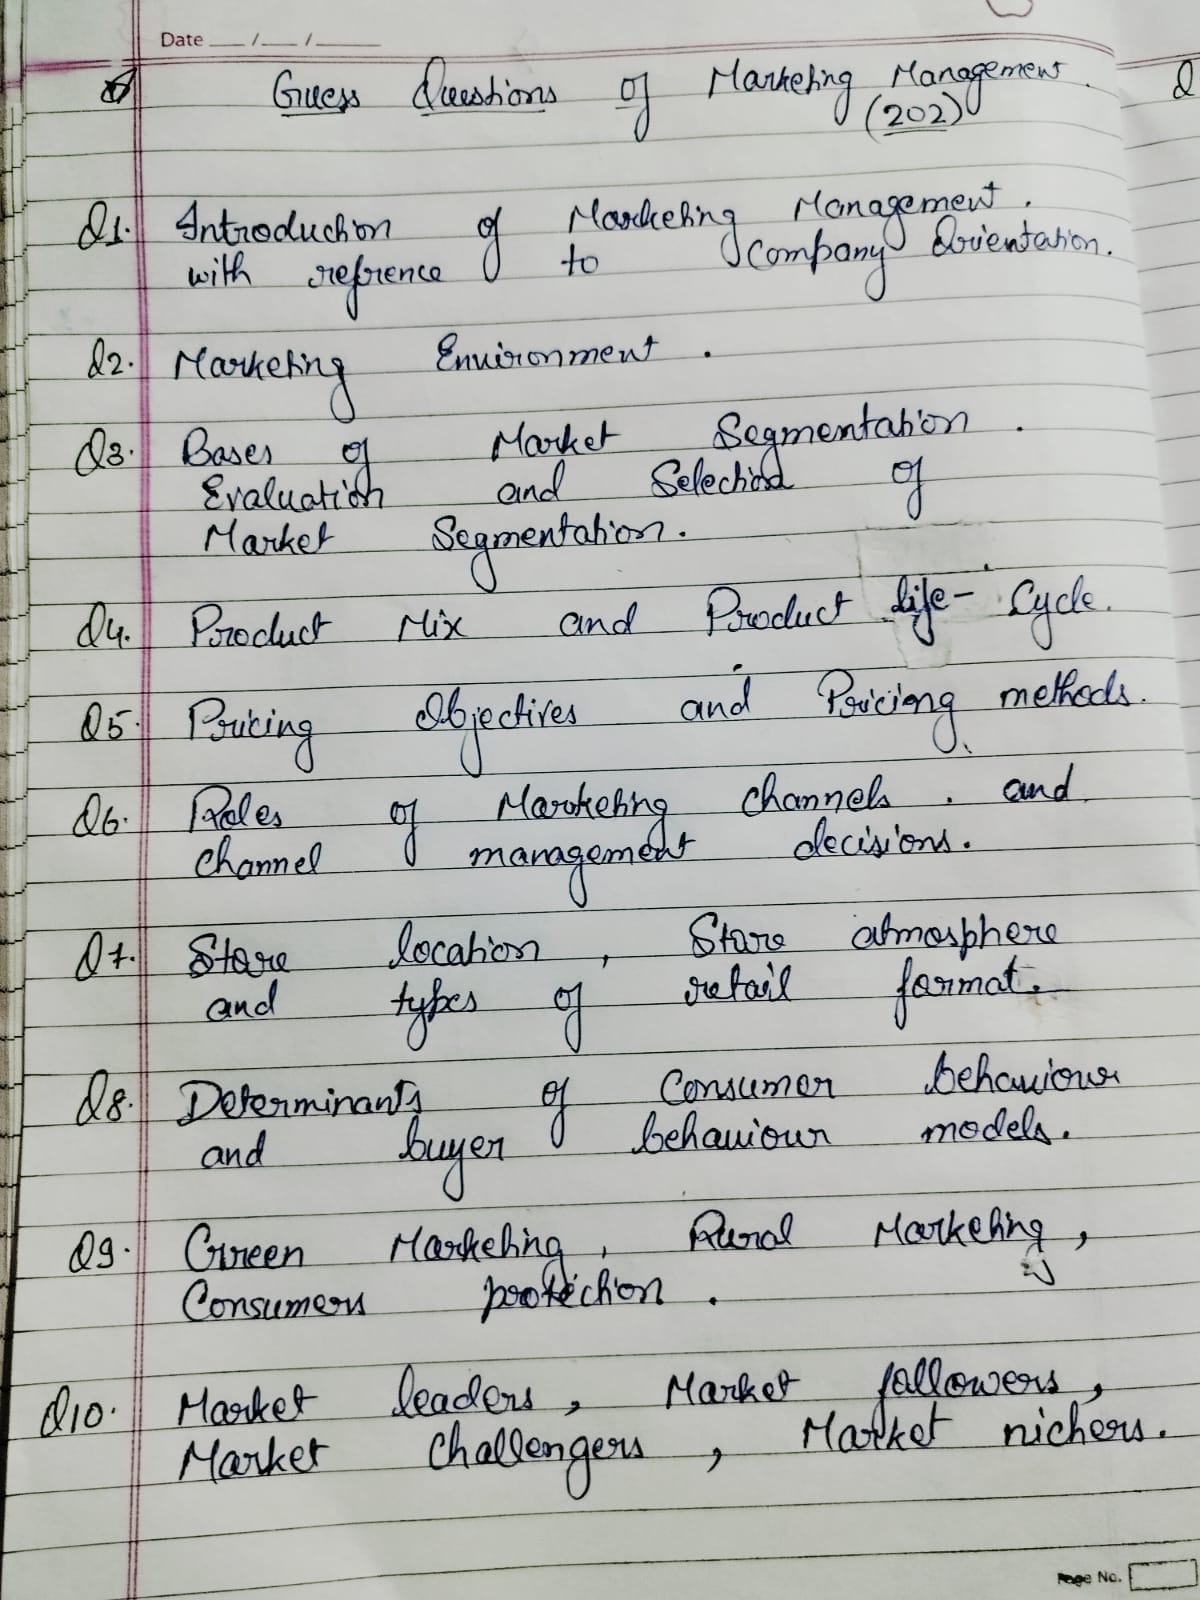 Date __/__/____
Guess Questions of Marketing Management.
(202)
Q
Q1. Introduction of Marketing Management.
with refrence to Company Orientation.
Q2. Marketing Environment.
Q3. Bases of Market Segmentation.
Evaluation and Selection of
Market Segmentation.
Q4. Product Mix and Product life-Cycle.
Q5. Pricing Objectives and Pricing methods.
Q6. Roles of Marketing channels. and
channel management decisions.
Q7. Store location, Store atmosphere
and types of retail format.
Q8. Determinants of Consumer behaviour
and buyer behaviour models.
Q9. Green Marketing, Rural Marketing,
Consumers protection.
Q10. Market leaders, Market followers,
Market challengers, Market nichers.
Page No.